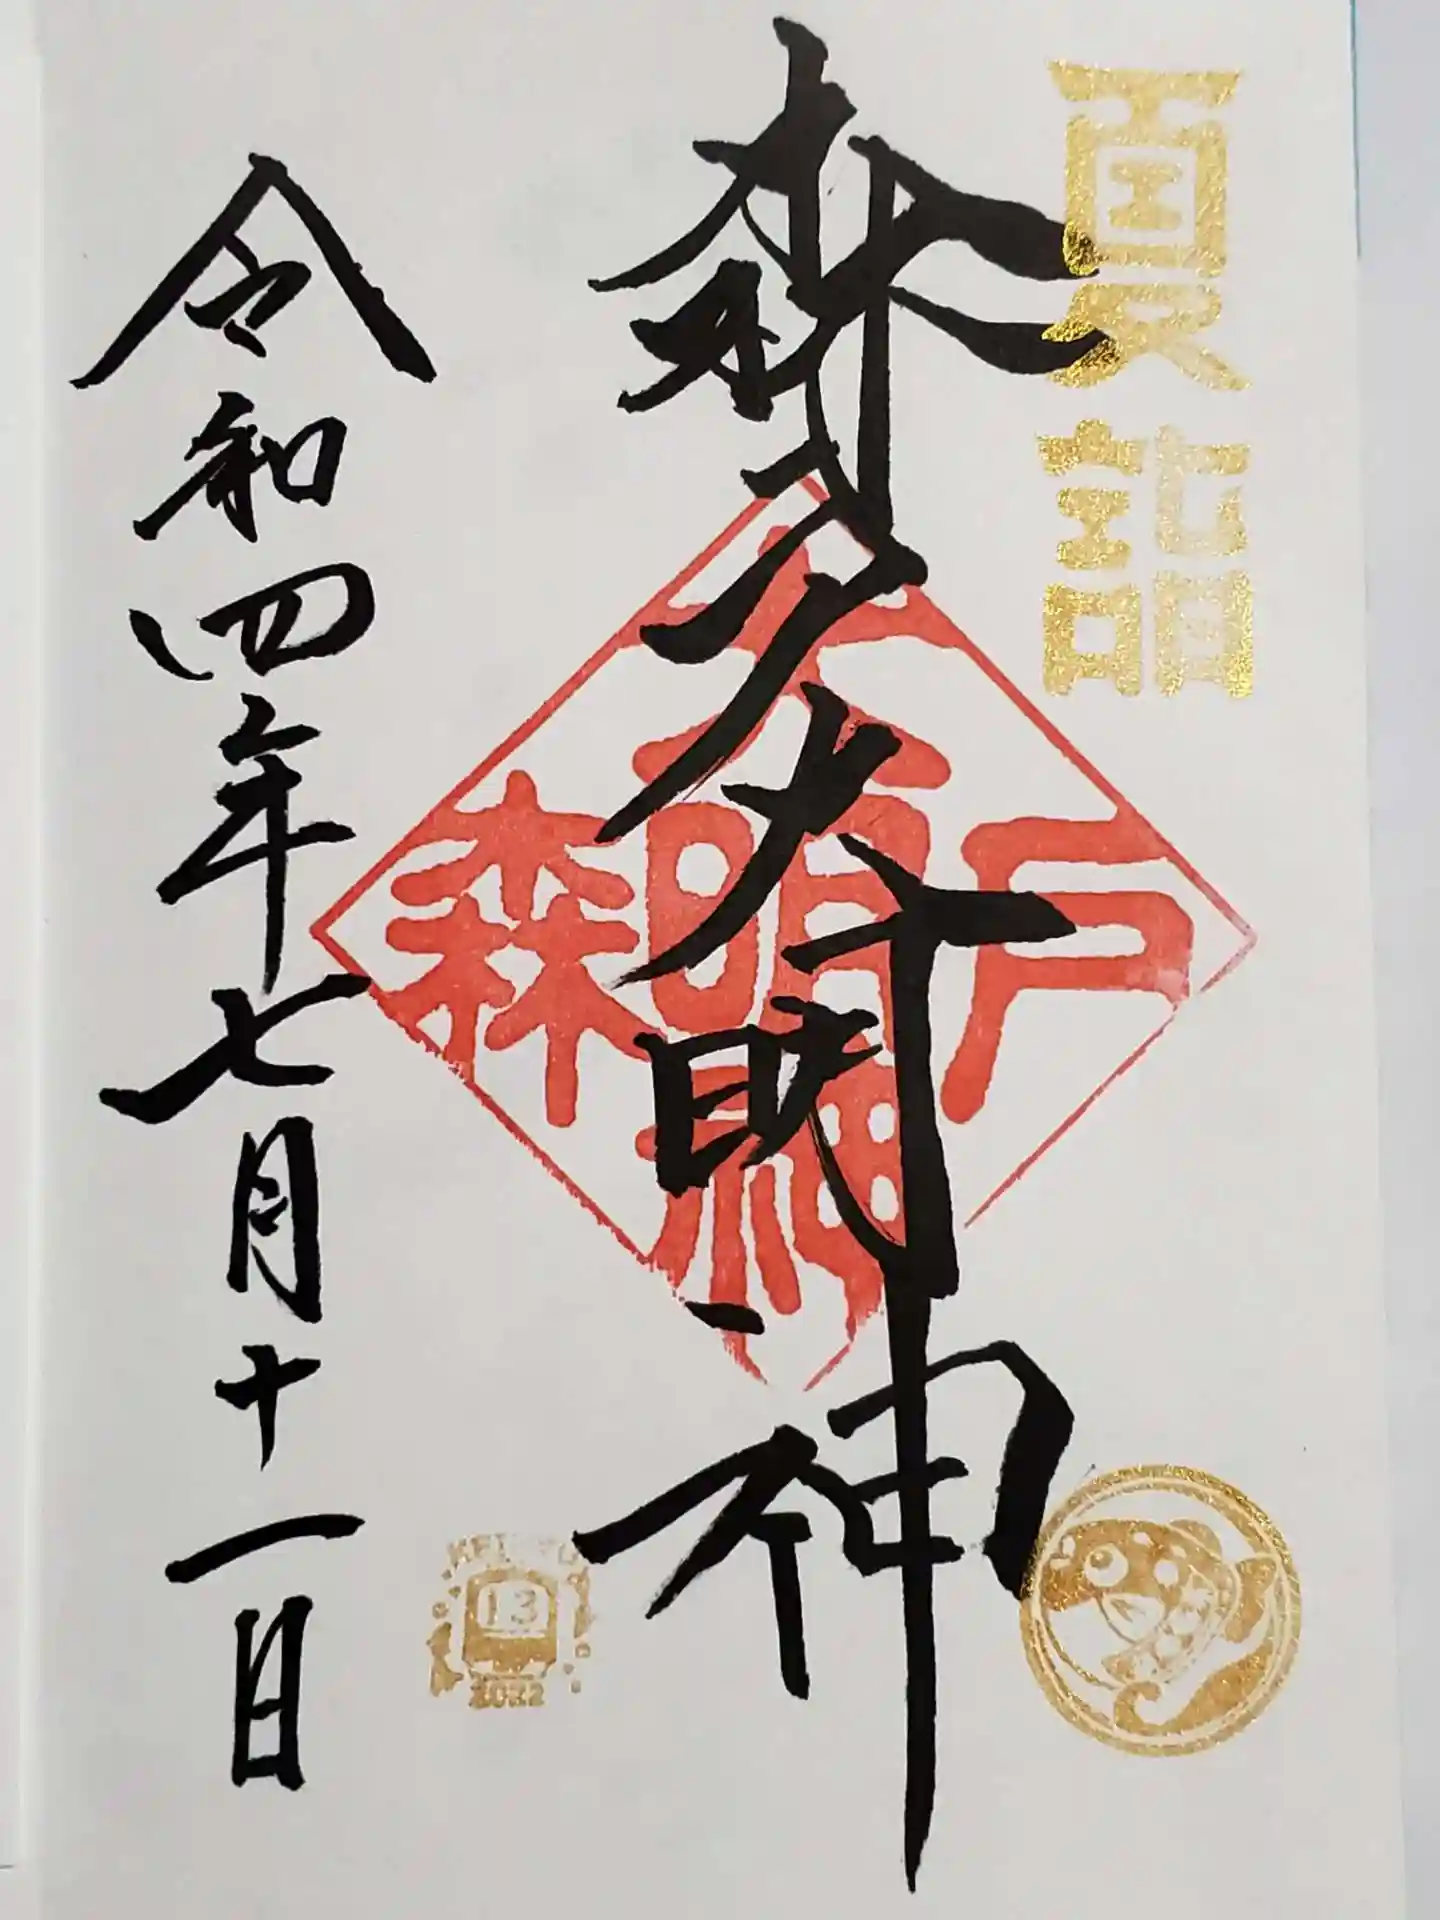 夏詣
森戸大明神
森戸
大明神
令和四年七月十一日
13
2022